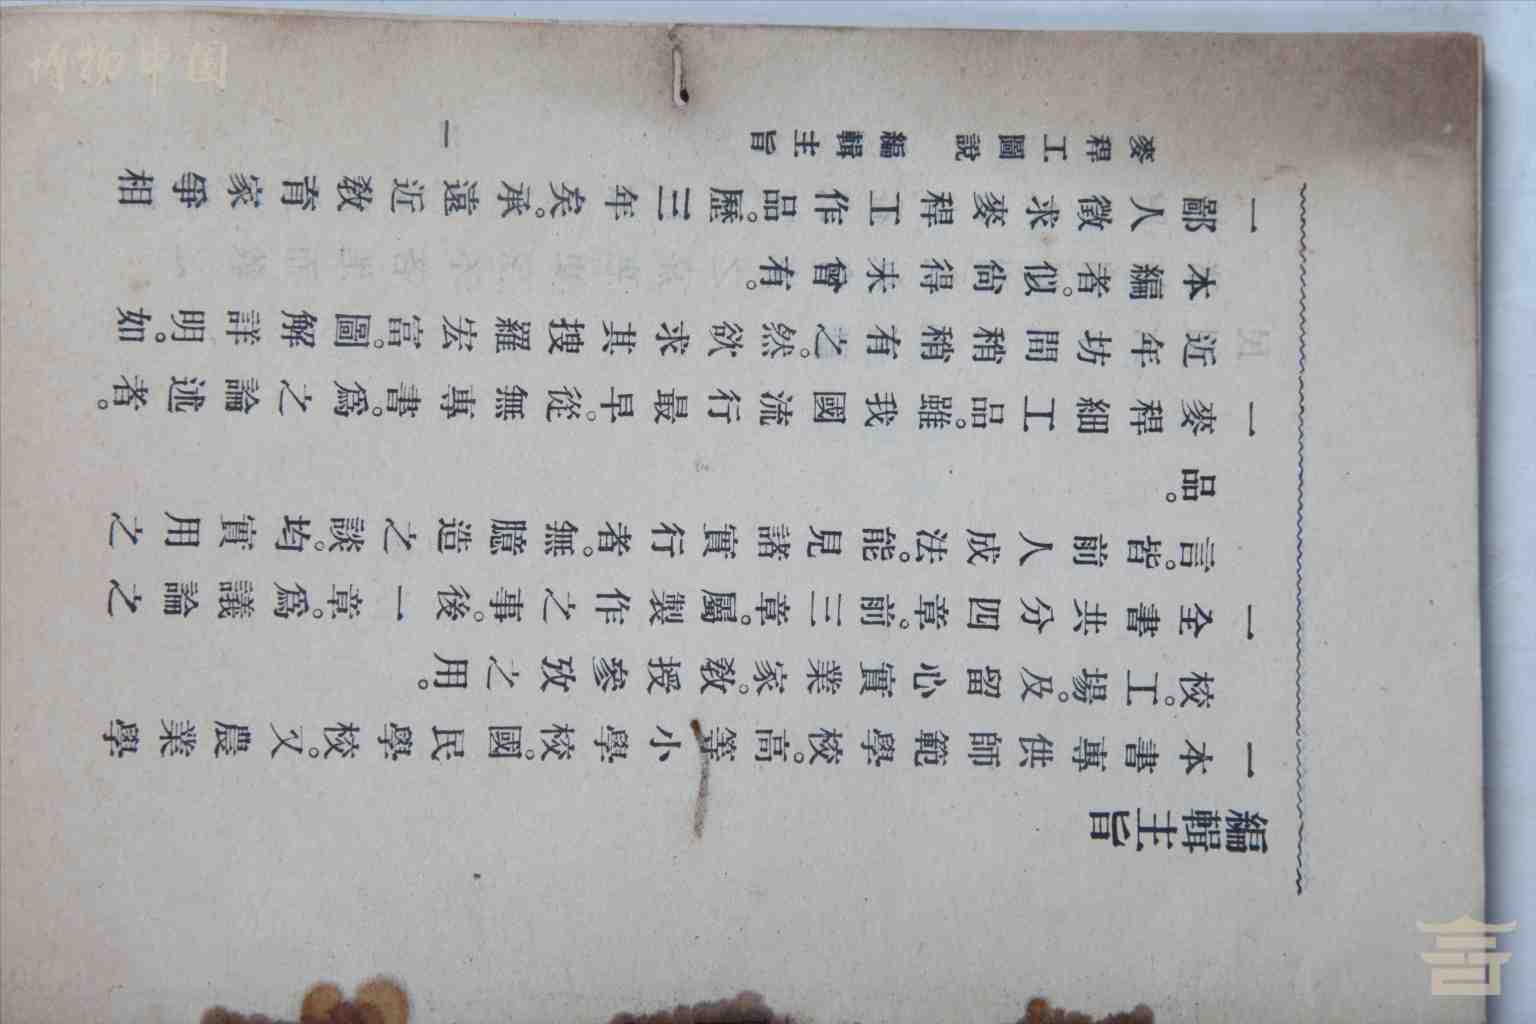 編輯主旨
一本書專供師範學校。高等小學校。國民學校。又農業學
校。工場。及留心實業家。敎授參攷之用。
一全書共分四章。前三章。屬製作之事。後一章。爲議論之
言。皆前人成法。能見諸實行者。無臆造之談。均實用之
品。
一麥稈細工品。雖我國流行最早。從無專書。爲之論述者。
近年坊間稍稍有之。然欲求其搜羅宏富。圖解詳明。如
本編者。似尙得未曾有。
一鄙人徵求麥稈工作品。歷三年矣。承遠近敎育家爭相
麥稈工圖說 編輯主旨
一
博物中國